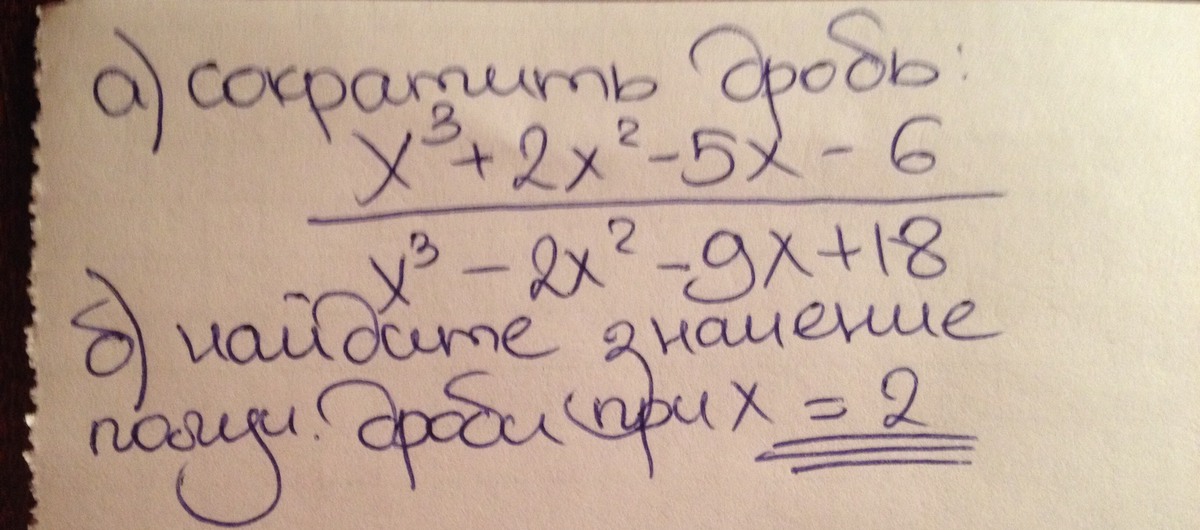 а) сократить дробь:
x³+2x²-5x-6
x³-2x²-9x+18
б) найдите значение
получ. дроби при x=2